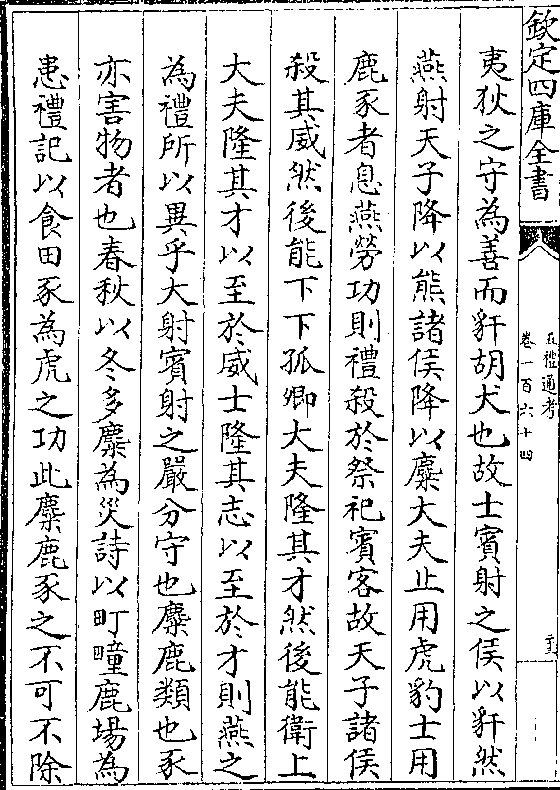 欽定四庫全書
五禮通考
卷一百六十四
夷狄之守為善而豻胡犬也故士賓射之侯以豻然
燕射天子降以熊諸侯降以麋大夫止用虎豹士用
鹿豕者息燕勞功則禮殺於祭祀賓客故天子諸侯
殺其威然後能下下孤卿大夫隆其才然後能衛上
大夫隆其才以至於威士隆其志以至於才則燕之
為禮所以異乎大射賓射之嚴分守也麋鹿類也豕
亦害物者也春秋以冬多麋為災詩以町畽鹿場為
患禮記以食田豕為虎之功此麋鹿豕之不可不除